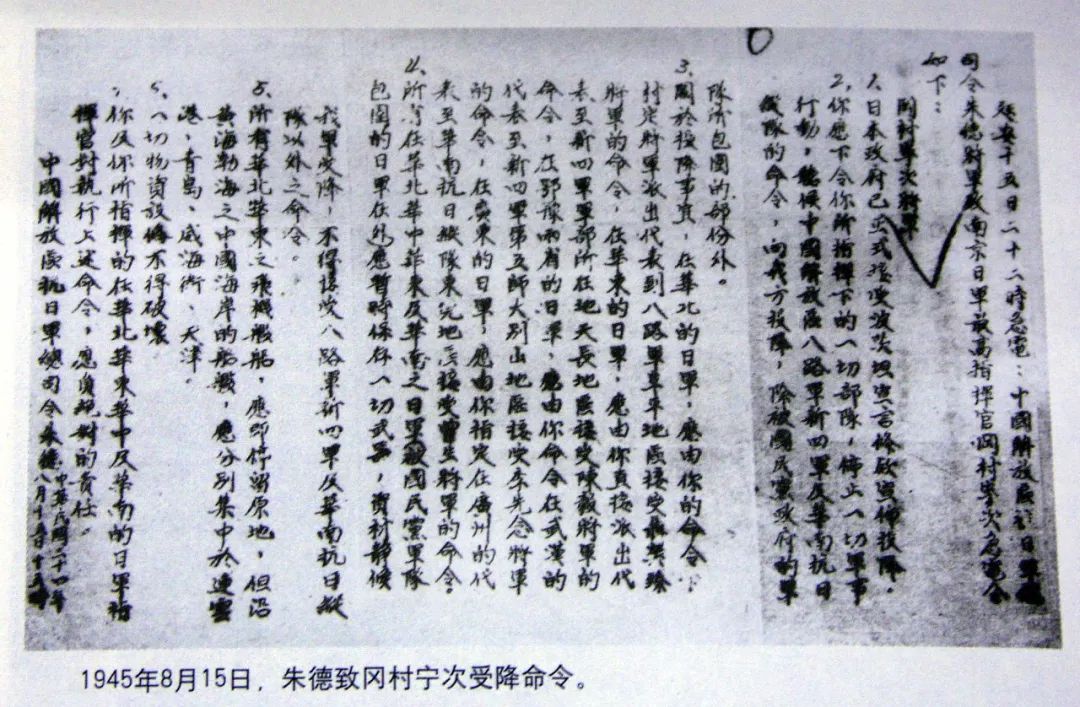 延安十五日二十二時急電:中國解放區抗日軍總
司令朱德將軍致南京日軍最高指揮官岡村寧次急電令
如下:
岡村寧次將軍
1、日本政府已正式接受波茨坦宣言條款宣佈投降。
2、你應下令你所指揮下的一切部隊,停止一切軍事
行動,聽候中國解放區八路軍新四軍及華南抗日
縱隊的命令,向我方投降,除被國民黨政府的軍
隊所包圍的部份外。
3、關於投降事宜,在華北的日軍,應由你的命令
村定將軍派出代表到八路軍阜平地區接受聶榮臻
將軍的命令,在華東的日軍,應由你直接派出代
表至新四軍軍部所在地天長地區接受陳毅將軍的
命令,在鄂豫兩省的日軍,應由你命令在武漢的
代表至新四軍第五師大別山地區接受李先念將軍
的命令,在廣東的日軍,應由你指定在廣州的代
表至華南抗日縱隊東莞地區接受曾生將軍的命令。
4、所有在華北華中華東及華南之日軍被國民黨軍隊
包圍的日軍在外應暫時保存一切武器,資材靜候
我軍受降,不得接受八路軍新四軍及華南抗日縱
隊以外之命令。
5、所有華北華東之飛機艦船,應即停留原地,但沿
黃海渤海之中國海岸的船艦,應分別集中於連雲
港,青島、威海衛、天津。
6、一切物資設備不得破壞
7、你及你所指揮的在華北華東華中及華南的日軍指
揮官對執行上述命令,應負絕對的責任。
中國解放區抗日軍總司令朱德
中華民國三十四年
八月十五日
1945年8月15日,朱德致冈村宁次受降命令。